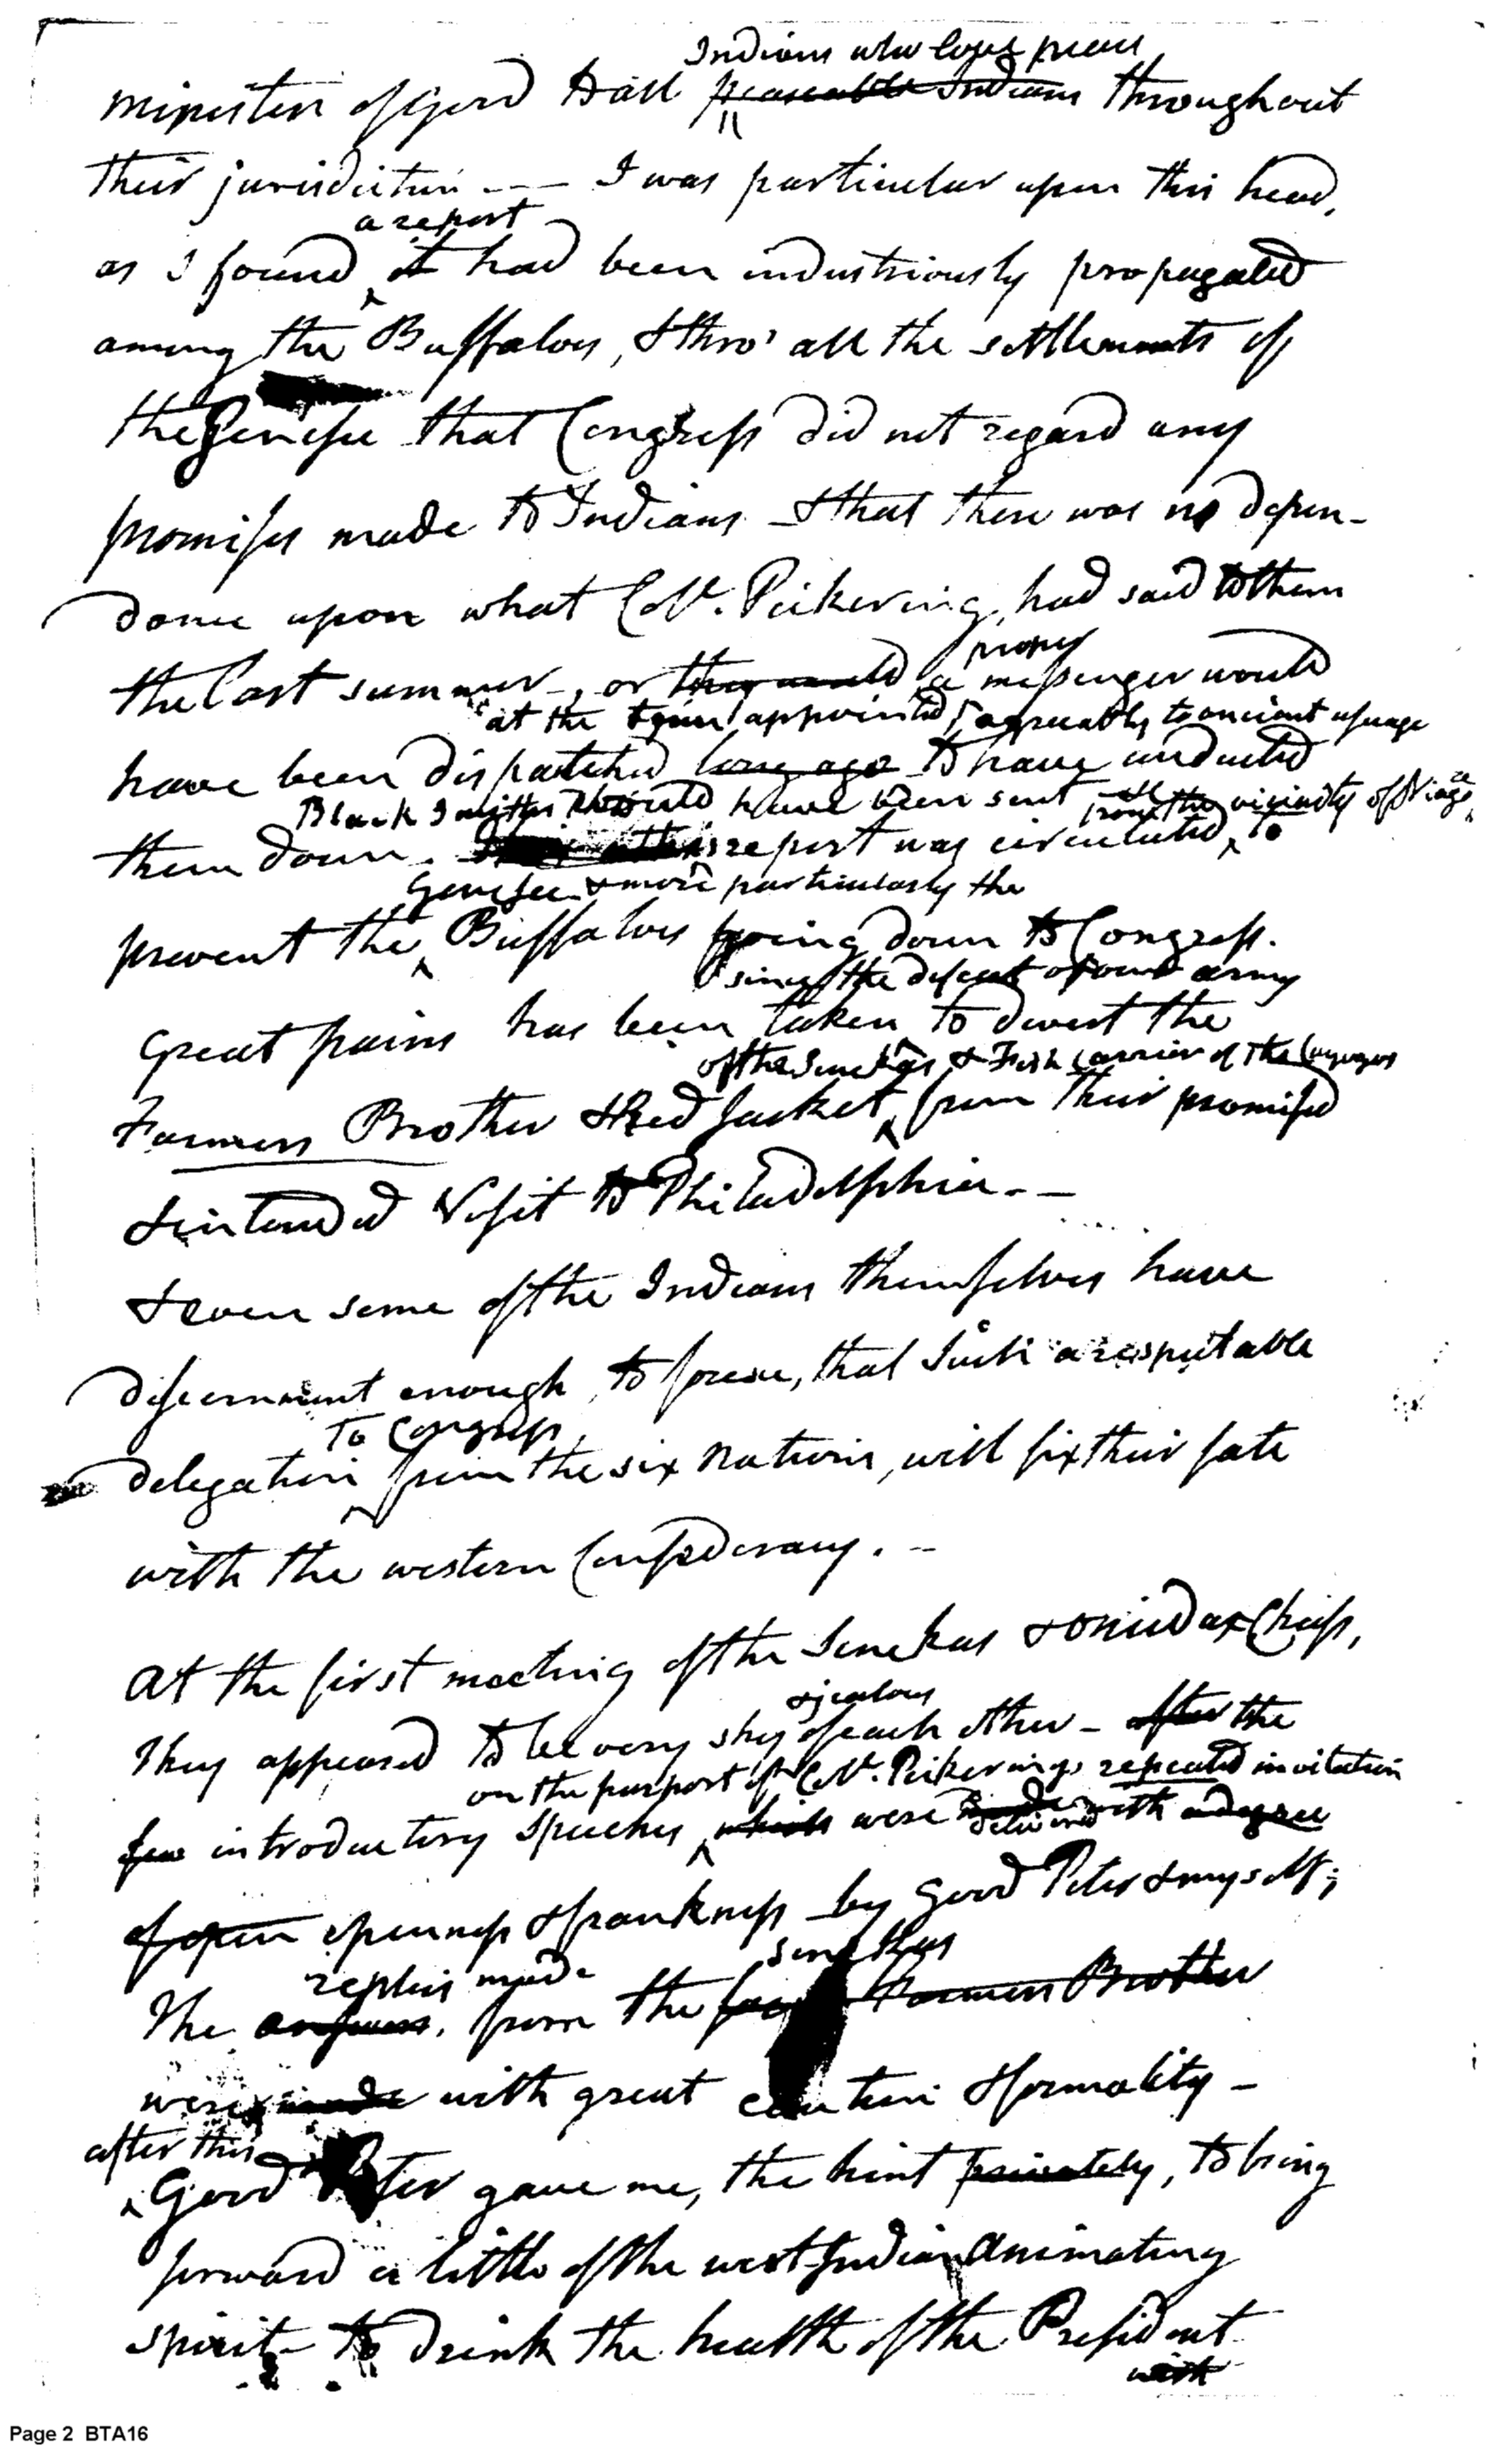 Indians who love peace
minister of Good to all peaceable Indians throughout
their jurisdiction --- I was particular upon this head,
a report
as I found it had been industriously propagated
among the Buffaloes, & thro' all the settlements of
the Genesee that Congress did not regard any
promises made to Indians & that there was no depen-
dance upon what Coll. Pickering, had said to them
proper
the last summer, or they would a messenger would
at the time appointed, agreeably to ancient usuage
have been dispatched long ago to have conducted
Black Smiths should have been sent from the vicinity of Niaga
them down. this report was circulated, to
Genesee & more particularly the
prevent the Buffaloes going down to Congress.
since the defeat of our army
Great pains has been taken to divert the
of the Senekas & Fish Carrier of the Cayugas
Farmers Brother & Red Jacket, from their promised
& intended Visit to Philadelphia. --
& even some of the Indians themselves have
discernment enough to foresee, that such a respectable
To Congress
delegation from the six Nations, will fix their fate
with the western Confederacy. -
At the first meeting of the Senekas & Oneidas Chiefs,
& jealous
They appeared to be very shy of each other - after the
on the purport of Coll. Pickering's repeated invitation
few introductory speeches which were made delivered with a degree
of open openness & frankness by Good Peter & myself;
replies made
Senekas
The answers, from the Farmers Brother
were made with great caution & formality -
after this
Good Peter gave me, the hint privately, to bring
forward a little of the west Indian animating
spirit - to drink the health of the President
with
Page 2 BTA16